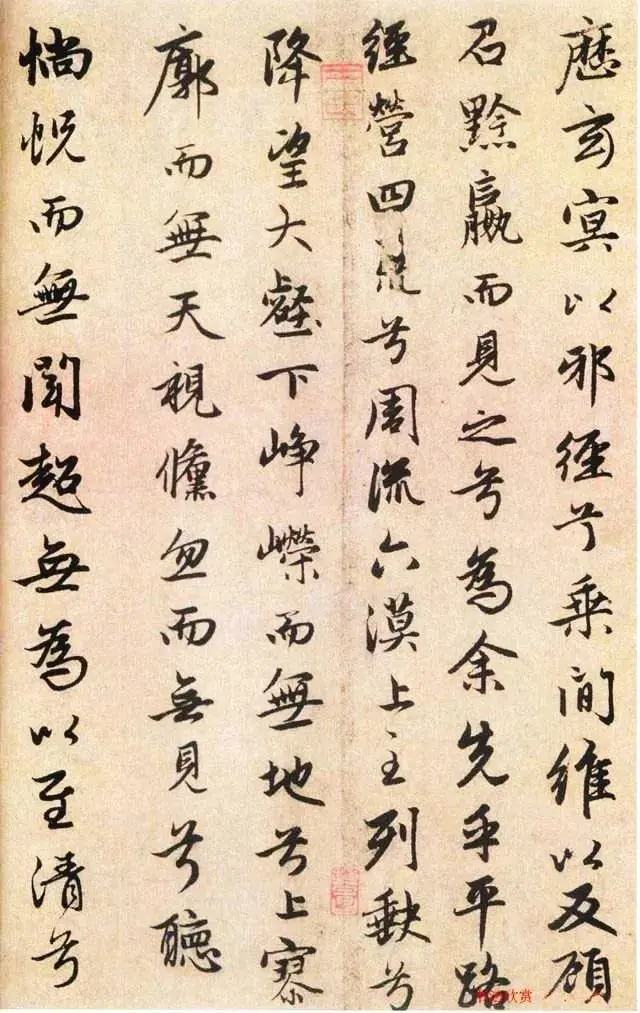 歷玄冥以邪徑兮乘間維以反顧
召黔嬴而見之兮為余先乎平路
經營四荒兮周流六漠上至列缺兮
降望大壑下崢嶸而無地兮上寥
廓而無天視儵忽而無見兮聽
惝怳而無聞超無為以至清兮
欣赏